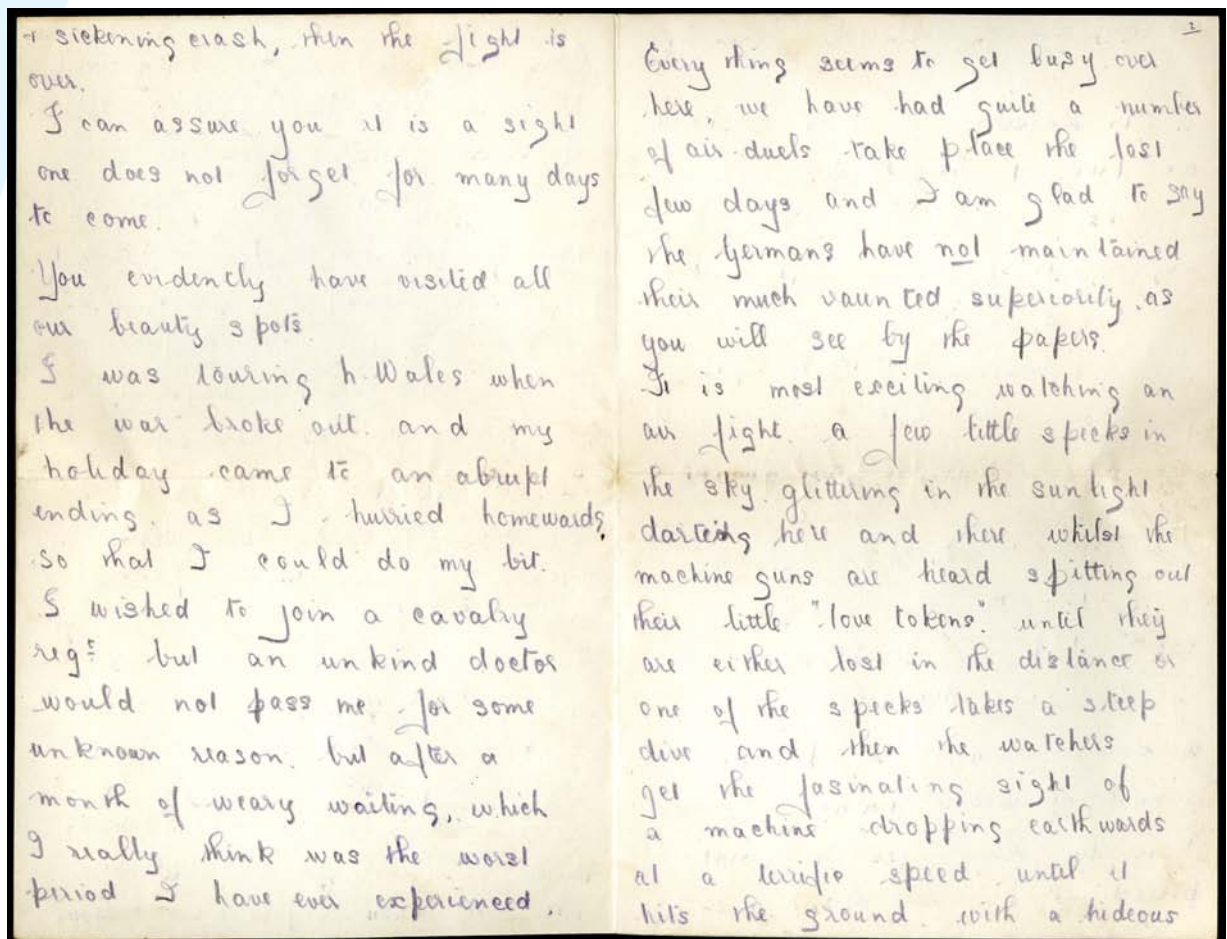 & sickening crash, then the fight is
over.
I can assure you it is a sight
one does not forget for many days
to come.
You evidently have visited all
our beauty spots.
I was touring N. Wales when
the war broke out. and my
holiday came to an abrupt
ending. as I hurried homewards,
so that I could do my bit.
I wished to join a cavalry
regt but an unkind doctor
would not pass me, for some
unknown reason. but after a
month of weary waiting, which
I really think was the worst
period I have ever experienced.
2
Every thing seems to get busy over
here, we have had quite a number
of air-duels take place the last
few days and I am glad to say
the Germans have not maintained
their much vaunted superiority. as
you will see by the papers.
It is most exciting watching an
air fight. a few little specks in
the sky. glittering in the sunlight
darting here and there, whilst the
machine guns are heard spitting out
their little "love tokens." until they
are either lost in the distance or
one of the specks takes a steep
dive and, then the watchers
get the fasinating sight of
a machine dropping earthwards
at a terrific speed until it
hits the ground. with a hideous